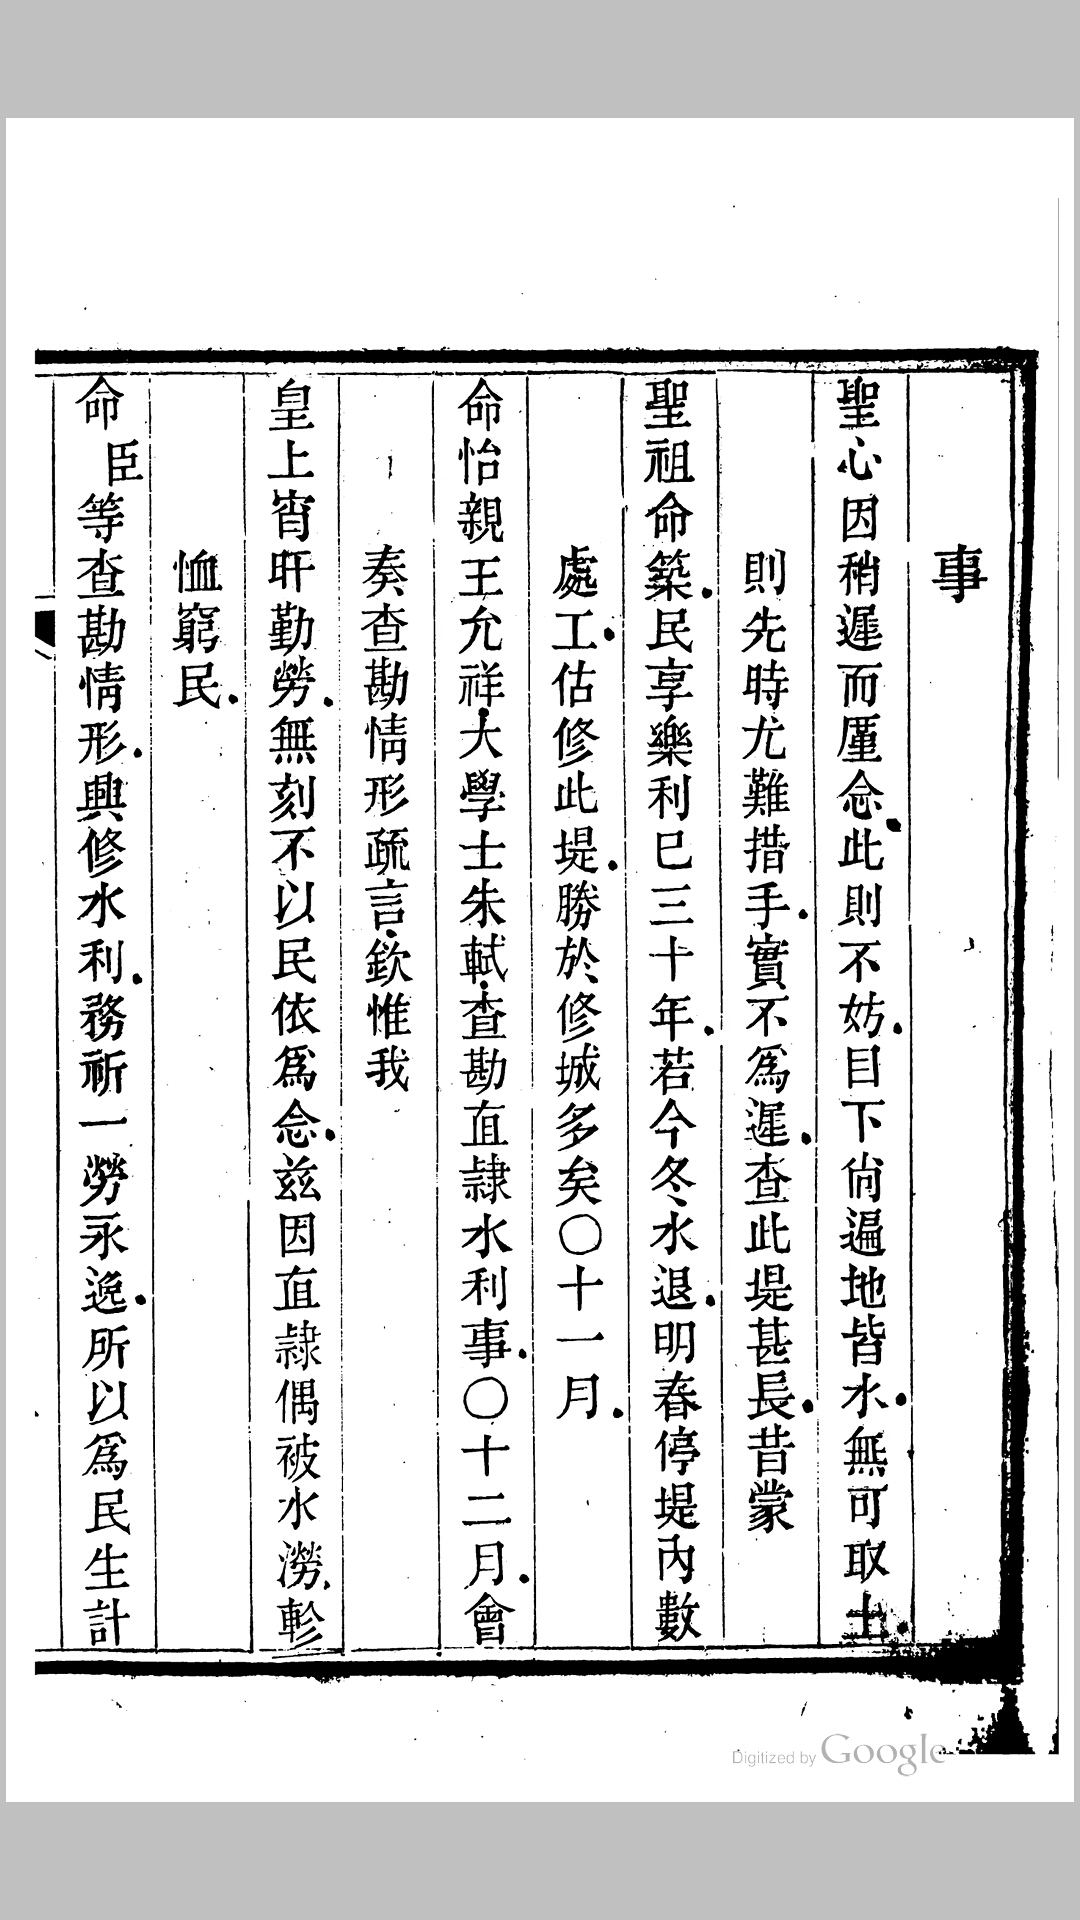 事
聖心因稍遲而厪念此則不妨目下尙遍地皆水無可取土
則先時尤難措手實不爲遲查此堤甚長昔蒙
聖祖命築民享樂利已三十年若今冬水退明春停堤內數
處工估修此堤勝於修城多矣〇十一月
命怡親王允祥大學士朱軾查勘直隸水利事〇十二月會
奏查勘情形疏言欽惟我
皇上宵旰勤勞無刻不以民依爲念茲因直隸偶被水澇軫
恤窮民
命臣等查勘情形興修水利務祈一勞永逸所以爲民生計
Digitized by Google